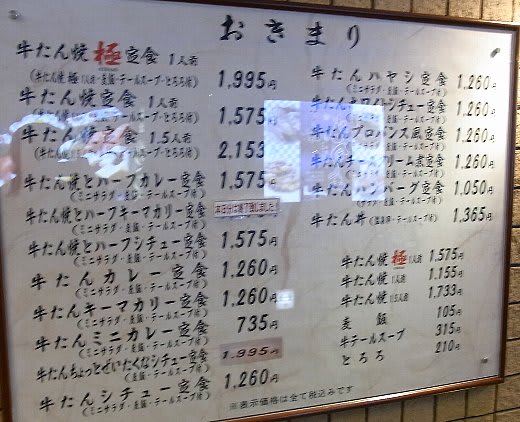 おきまり
牛たん焼 極 定食 1人前
(牛たん焼 極 1人前・麦飯・テールスープ・とろろ付)
1,995円
牛たん焼定食 1人前
(牛たん焼 1人前・麦飯・テールスープ・とろろ付)
1,575円
牛たん焼定食 1.5人前
2,153
牛たん焼とハーフカレー定食
(ミニサラダ・麦飯・テールスープ付)
1,575円
牛たん焼とハーフキーマカリー定食
(ミニサラダ・麦飯・テールスープ付)
本日分は終了致しました
牛たん焼とハーフシチュー定食
(ミニサラダ・麦飯・テールスープ付)
1,575円
牛たんカレー定食
(ミニサラダ・麦飯・テールスープ付)
1,260円
牛たんキーマカリー定食
(ミニサラダ・麦飯・テールスープ付)
1,260円
牛たんミニカレー定食
(ミニサラダ・麦飯・テールスープ付)
735円
牛たんちょっとぜいたくなシチュー定食
(ミニサラダ・麦飯・テールスープ付)
1,995円
牛たんシチュー定食
(ミニサラダ・麦飯・テールスープ付)
1,260円
牛たんハヤシ定食
(ミニサラダ・麦飯・テールスープ付)
1,260円
牛たんホワイトシチュー定食
(ミニサラダ・麦飯・テールスープ付)
1,260円
牛たんプロバンス風定食
(ミニサラダ・麦飯・テールスープ付)
1,260円
クリーム煮定食
(ミニサラダ・麦飯・テールスープ付)
1,260円
牛たんハンバーグ定食
(ミニサラダ・麦飯・テールスープ付)
1,050円
牛たん丼
テールスープ付)
1,365円
牛たん焼 極 1人前 1,575円
牛たん焼 1人前 1,155円
牛たん焼 1.5人前 1,733円
麦飯 105円
牛テールスープ 315円
とろろ 210円
※表示価格は全て税込みです